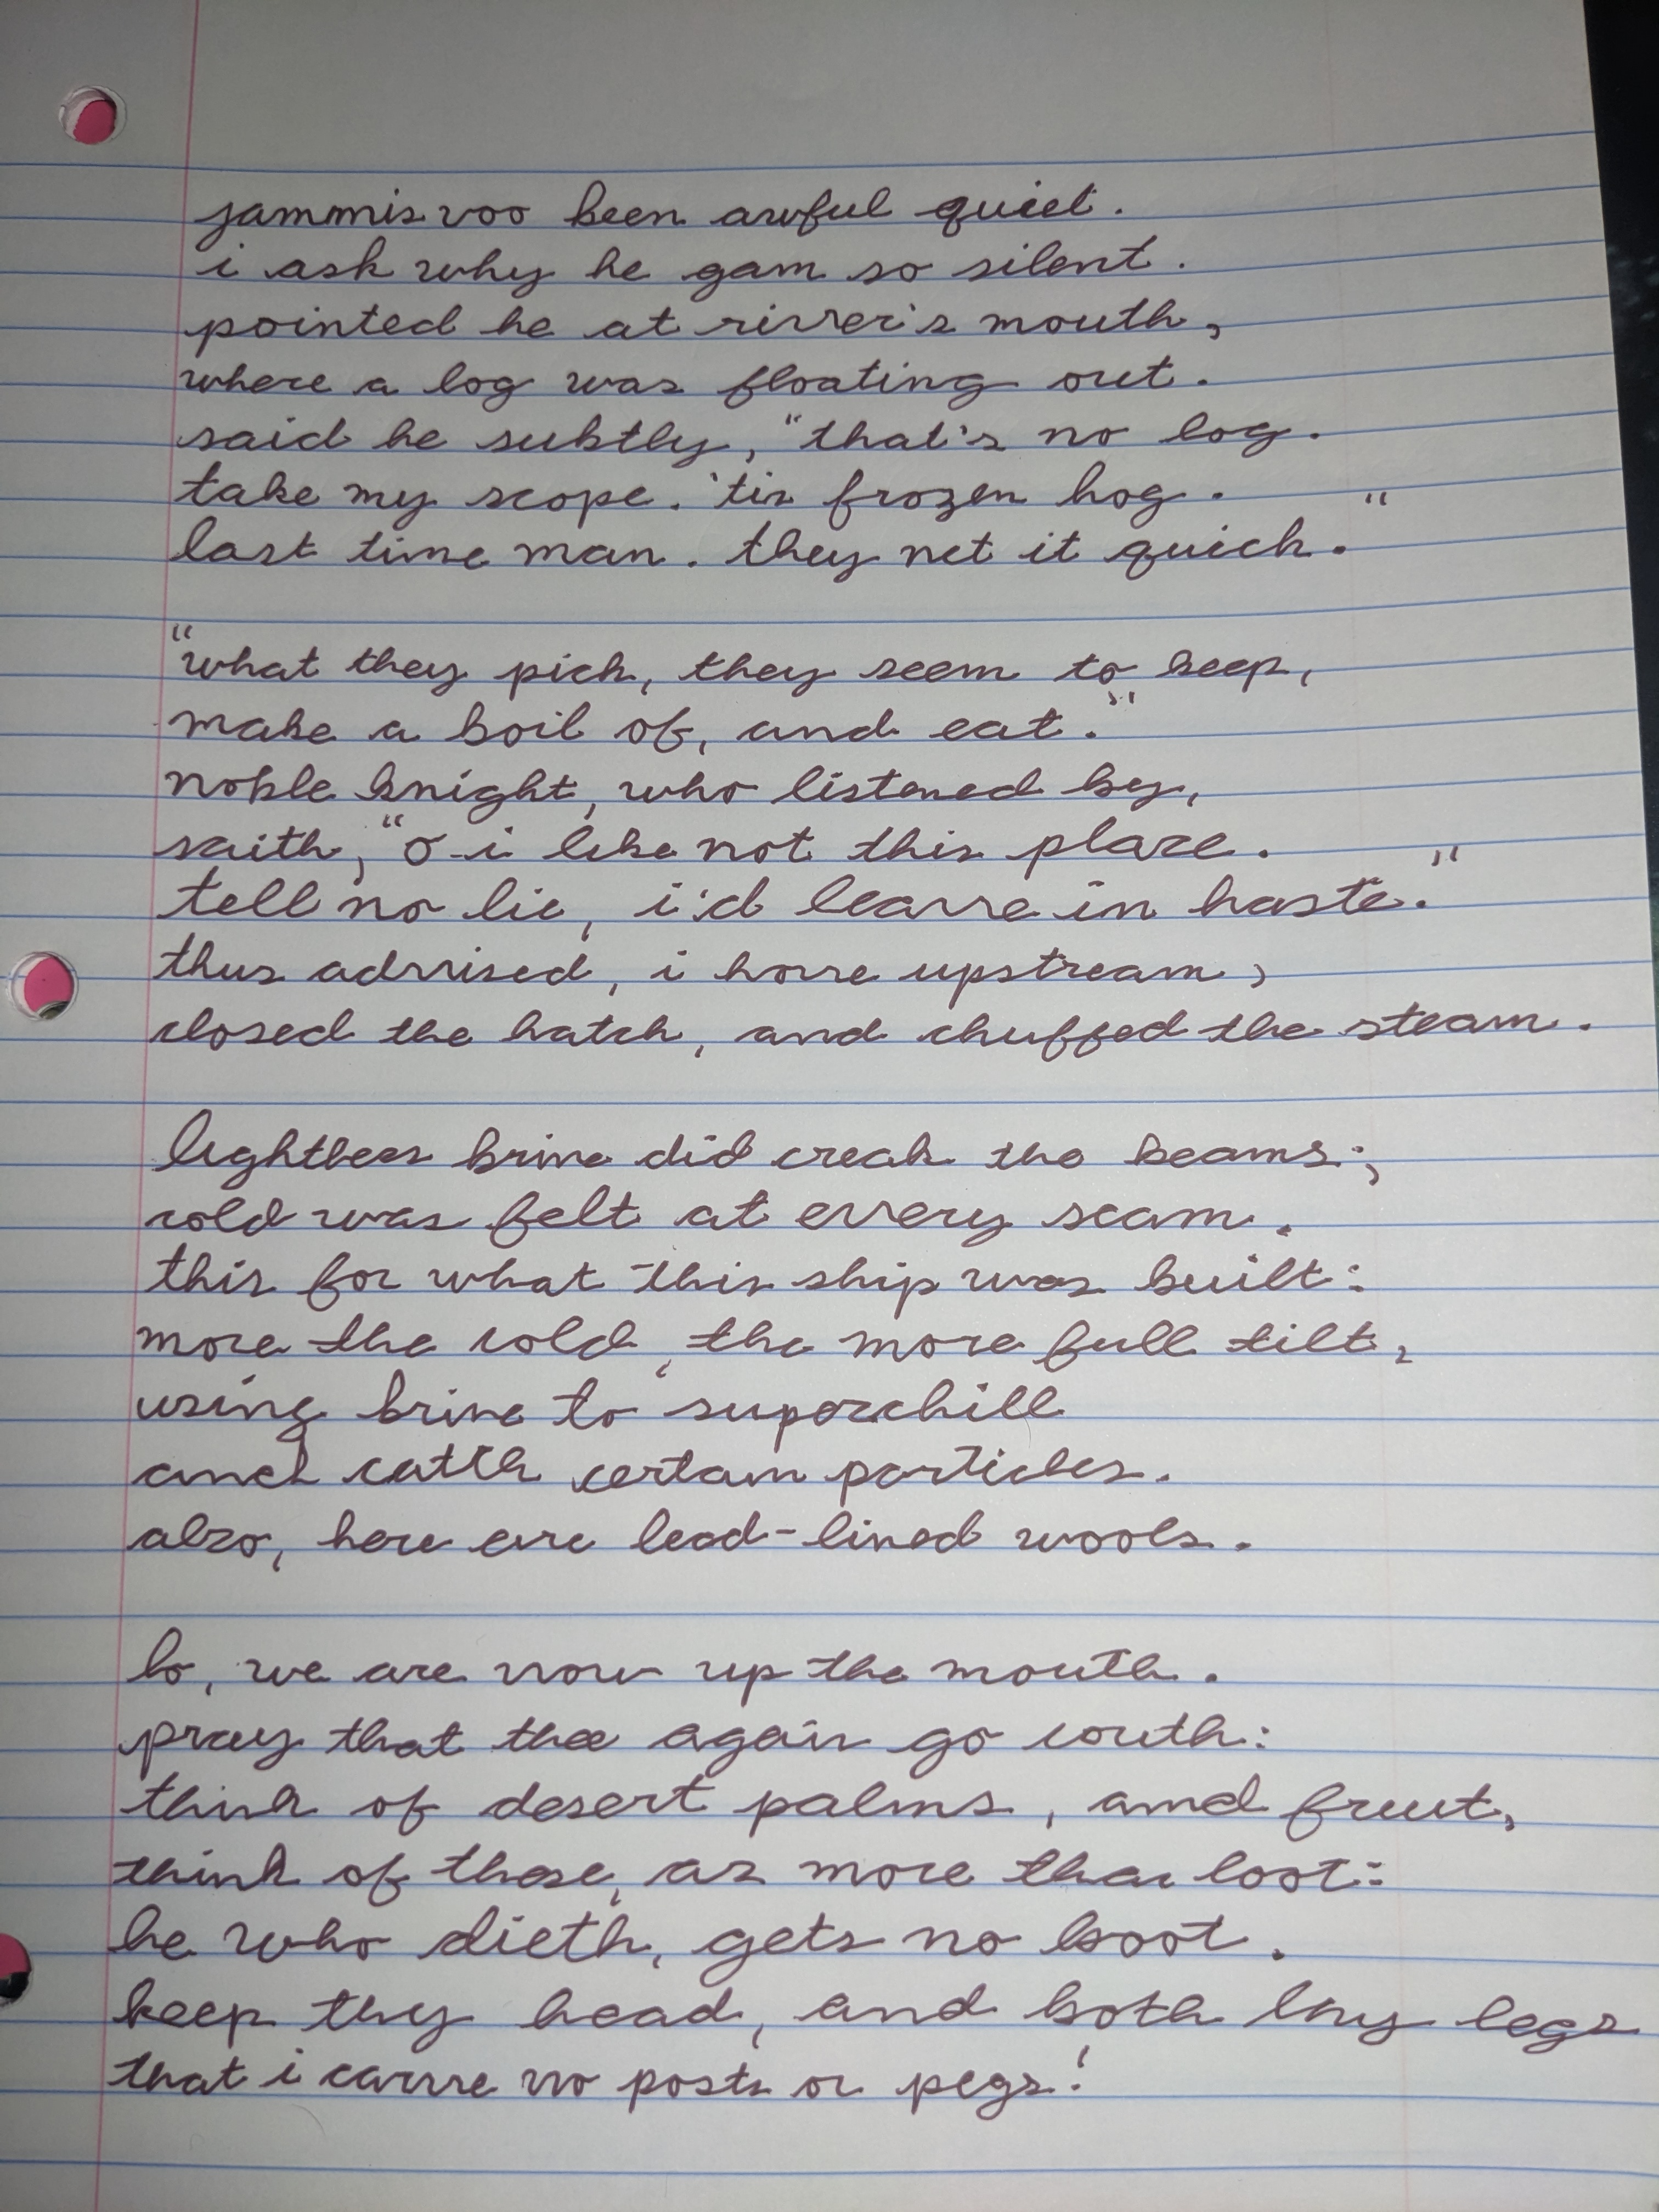 jammis voo been awful quiet.
i ask why he gam so silent.
pointed he at river's mouth,
where a log was floating out.
said he subtly, "that's no log.
take my scope. 'tis frozen hog.
last time man. they net it quick."
"what they pick, they seem to keep,
make a boil of, and eat."
noble knight, who listened by,
saith, "o i like not this place.
tell no lie, i'd leave in haste."
thus advised, i hove upstream,
closed the hatch, and chuffed the steam.
lightless brine did creak the beams;
cold was felt at every seam.
this for what this ship was built:
more the cold, the more full tilt,
using brine to superchill
and catch certain particles.
also, here are lead-lined wools.
lo, we are now up the mouth.
pray that thee again go south:
think of desert palms, and fruit,
think of those, as more than loot:
he who dieth, gets no boot.
keep thy head, and both thy legs
that i carve no posts or pegs!